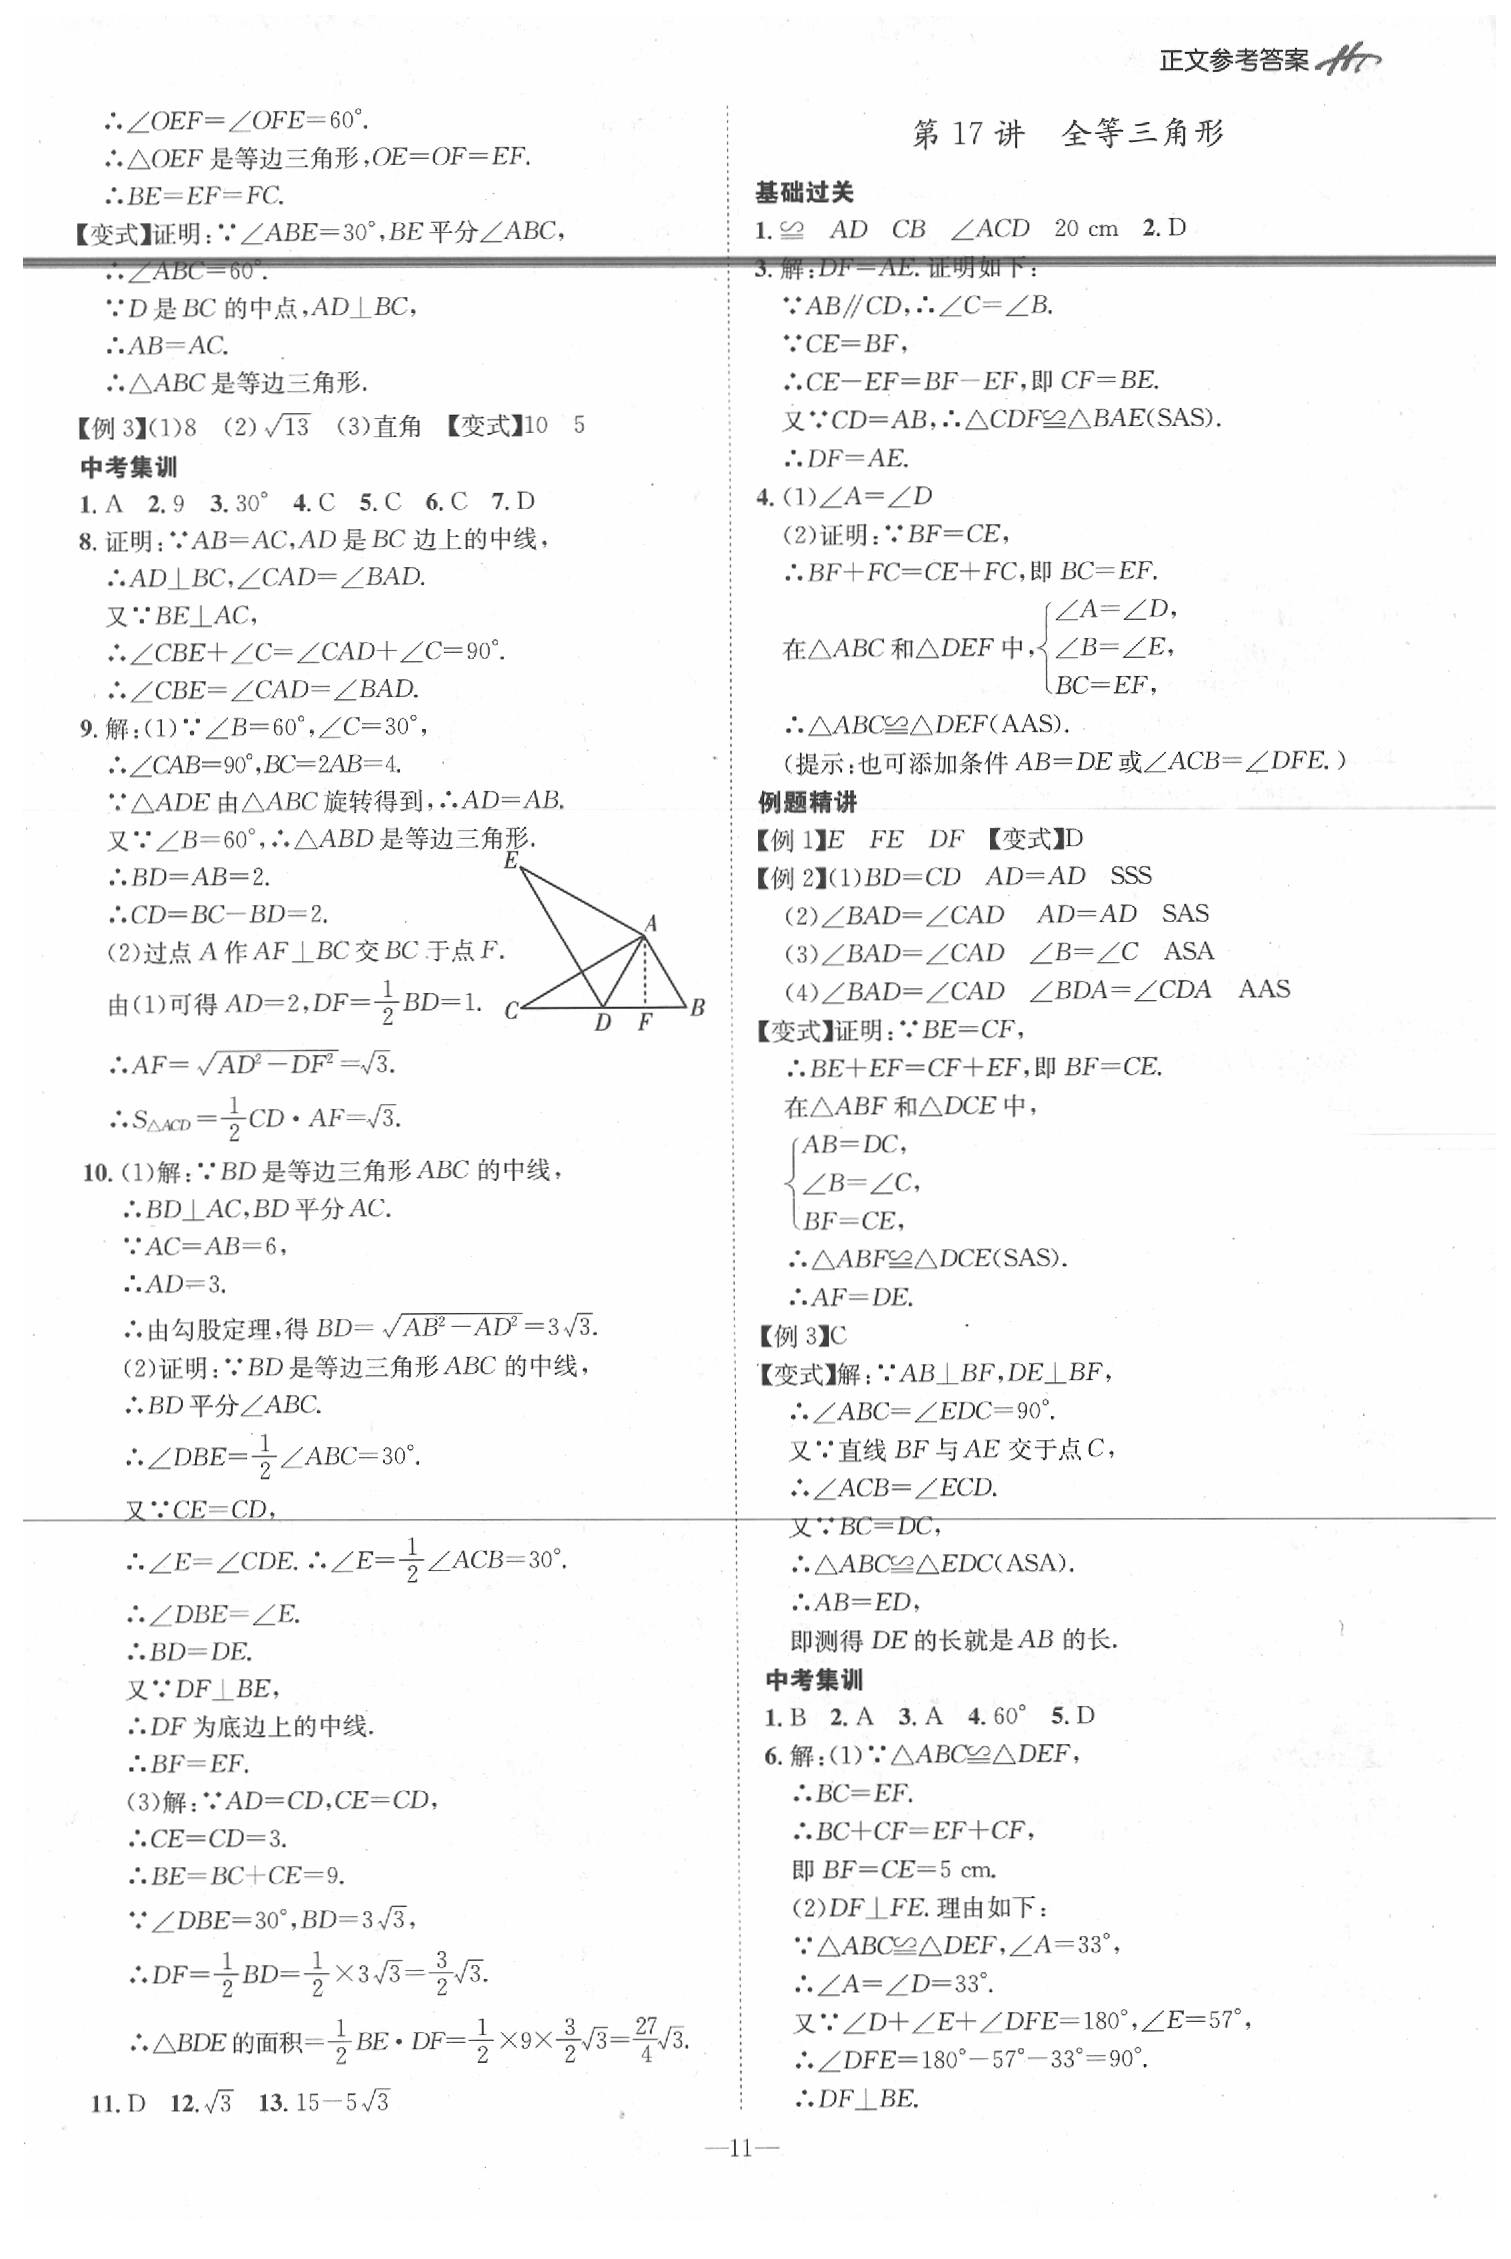 正文参考答案
∴∠OEF=∠OFE=60°.
∴△OEF是等边三角形,OE=OF=EF.
∴BE=EF=FC.
【变式】证明:∵∠ABE=30°,BE平分∠ABC,
∴∠ABC=60°.
∵D是BC的中点,AD⊥BC,
∴AB=AC.
∴△ABC是等边三角形.
【例3】(1)8 (2)√13 (3)直角 【变式】10 5
中考集训
1.A 2.9 3.30° 4.C 5.C 6.C 7.D
8.证明:∵AB=AC,AD是BC边上的中线,
∴AD⊥BC,∠CAD=∠BAD.
又∵BE⊥AC,
∴∠CBE+∠C=∠CAD+∠C=90°.
∴∠CBE=∠CAD=∠BAD.
9.解:(1)∵∠B=60°,∠C=30°,
∴∠CAB=90°,BC=2AB=4.
∵△ADE由△ABC旋转得到,∴AD=AB.
又∵∠B=60°,∴△ABD是等边三角形.
∴BD=AB=2.
∴CD=BC-BD=2.
(2)过点A作AF⊥BC交BC于点F.
由(1)可得AD=2,DF=1/2BD=1.
E
A
C
D
F
B
∴AF=√(AD²-DF²)=√3.
∴S△ACD=1/2CD·AF=√3.
10.(1)解:∵BD是等边三角形ABC的中线,
∴BD⊥AC,BD平分AC.
∵AC=AB=6,
∴AD=3.
∴由勾股定理,得BD=√(AB²-AD²)=3√3.
(2)证明:∵BD是等边三角形ABC的中线,
∴BD平分∠ABC.
∴∠DBE=1/2∠ABC=30°.
又∵CE=CD,
∴∠E=∠CDE.∴∠E=1/2∠ACB=30°.
∴∠DBE=∠E.
∴BD=DE.
又∵DF⊥BE,
∴DF为底边上的中线.
∴BF=EF.
(3)解:∵AD=CD,CE=CD,
∴CE=CD=3.
∴BE=BC+CE=9.
∵∠DBE=30°,BD=3√3,
∴DF=1/2BD=1/2×3√3=3/2√3.
∴△BDE的面积=1/2BE·DF=1/2×9×3/2√3=27/4√3.
11.D 12.√3 13.15-5√3
第17讲 全等三角形
基础过关
1.≌ AD CB ∠ACD 20 cm 2.D
3.解:DF=AE.证明如下:
∵AB∥CD,∴∠C=∠B.
∵CE=BF,
∴CE-EF=BF-EF,即CF=BE.
又∵CD=AB,∴△CDF≌△BAE(SAS).
∴DF=AE.
4.(1)∠A=∠D
(2)证明:∵BF=CE,
∴BF+FC=CE+FC,即BC=EF.
∠A=∠D,
在△ABC和△DEF中,{∠B=∠E,
BC=EF,
∴△ABC≌△DEF(AAS).
(提示:也可添加条件AB=DE或∠ACB=∠DFE.)
例题精讲
【例1】E FE DF 【变式】D
【例2】(1)BD=CD AD=AD SSS
(2)∠BAD=∠CAD AD=AD SAS
(3)∠BAD=∠CAD ∠B=∠C ASA
(4)∠BAD=∠CAD ∠BDA=∠CDA AAS
【变式】证明:∵BE=CF,
∴BE+EF=CF+EF,即BF=CE.
在△ABF和△DCE中,
AB=DC,
{∠B=∠C,
BF=CE,
∴△ABF≌△DCE(SAS).
∴AF=DE.
【例3】C
【变式】解:∵AB⊥BF,DE⊥BF,
∴∠ABC=∠EDC=90°.
又∵直线BF与AE交于点C,
∴∠ACB=∠ECD.
又∵BC=DC,
∴△ABC≌△EDC(ASA).
∴AB=ED,
即测得DE的长就是AB的长.
中考集训
1.B 2.A 3.A 4.60° 5.D
6.解:(1)∵△ABC≌△DEF,
∴BC=EF.
∴BC+CF=EF+CF,
即BF=CE=5 cm.
(2)DF⊥FE.理由如下:
∵△ABC≌△DEF,∠A=33°,
∴∠A=∠D=33°.
又∵∠D+∠E+∠DFE=180°,∠E=57°,
∴∠DFE=180°-57°-33°=90°.
∴DF⊥BE.
—11—